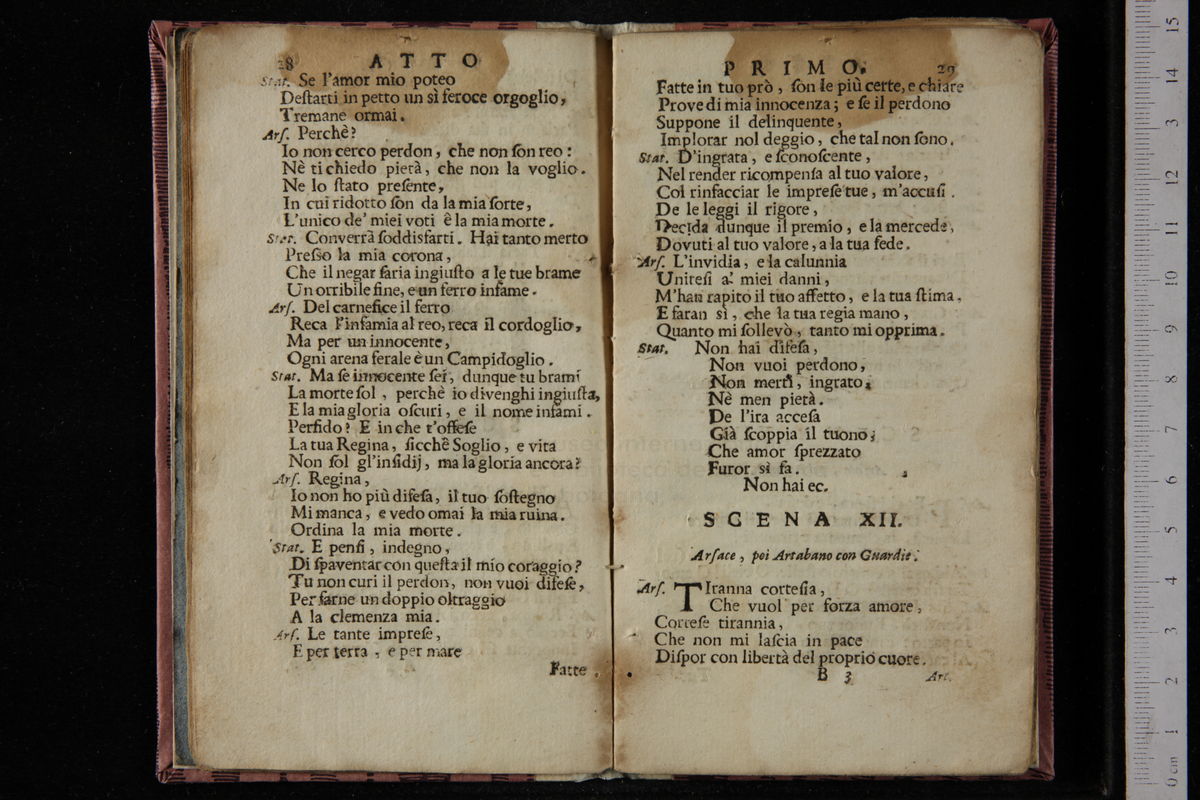 28 ATTO
Stat. Se l'amor mio poteo
Deſtarti in petto un sì feroce orgoglio,
Tremane ormai.
Arſ. Perchè?
Io non cerco perdon, che non ſon reo:
Nè ti chiedo pietà, che non la voglio.
Ne lo ſtato preſente,
In cui ridotto ſon da la mia ſorte,
L'unico de' miei voti è la mia morte.
Stat. Converrà ſoddisfarti. Hai tanto merto
Preſſo la mia corona,
Che il negar ſaria ingiuſto a le tue brame
Un orribile fine, e un ferro infame.
Arſ. Del carnefice il ferro
Reca l'infamia al reo, reca il cordoglio,
Ma per un innocente,
Ogni arena ferale è un Campidoglio.
Stat. Ma ſe innocente ſei, dunque tu brami
La morte ſol, perchè io divenghi ingiuſta,
E la mia gloria oſcuri, e il nome infami.
Perfido? E in che t'offeſe
La tua Regina, ſicchè Soglio, e vita
Non ſol gl'inſidij, ma la gloria ancora?
Arſ. Regina,
Io non ho più difeſa, il tuo ſoſtegno
Mi manca, e vedo omai la mia ruina.
Ordina la mia morte.
Stat. E penſi, indegno,
Di ſpaventar con queſta il mio coraggio?
Tu non curi il perdon, non vuoi difeſe,
Per farne un doppio oltraggio
A la clemenza mia.
Arſ. Le tante impreſe,
E per terra, e per mare
Fatte
PRIMO. 29
Fatte in tuo prò, ſon le più certe, e chiare
Prove di mia innocenza; e ſe il perdono
Suppone il delinquente,
Implorar nol deggio, che tal non ſono.
Stat. D'ingrata, e ſconoſcente,
Nel render ricompenſa al tuo valore,
Col rinfacciar le impreſe tue, m'accuſi.
De le leggi il rigore,
Decida dunque il premio, e la mercede,
Dovuti al tuo valore, a la tua fede.
Arſ. L'invidia, e la calunnia
Unireſi a' miei danni,
M'han rapito il tuo affetto, e la tua ſtima,
E faran sì, che la tua regia mano,
Quanto mi ſollevò, tanto mi opprima.
Stat. Non hai difeſa,
Non vuoi perdono,
Non merti, ingrato,
Nè men pietà.
De l'ira acceſa
Già ſcoppia il tuono;
Che amor ſprezzato
Furor si fa.
Non hai ec.
SCENA XII.
Arſace, poi Artabano con Guardie.
Arſ. TIranna corteſia,
Che vuol per forza amore,
Corteſe tirannia,
Che non mi laſcia in pace
Diſpor con libertà del proprio cuore.
B 3 Art.
15
14
3
12
11
10
9
8
7
6
5
4
3
2
1
0 cm